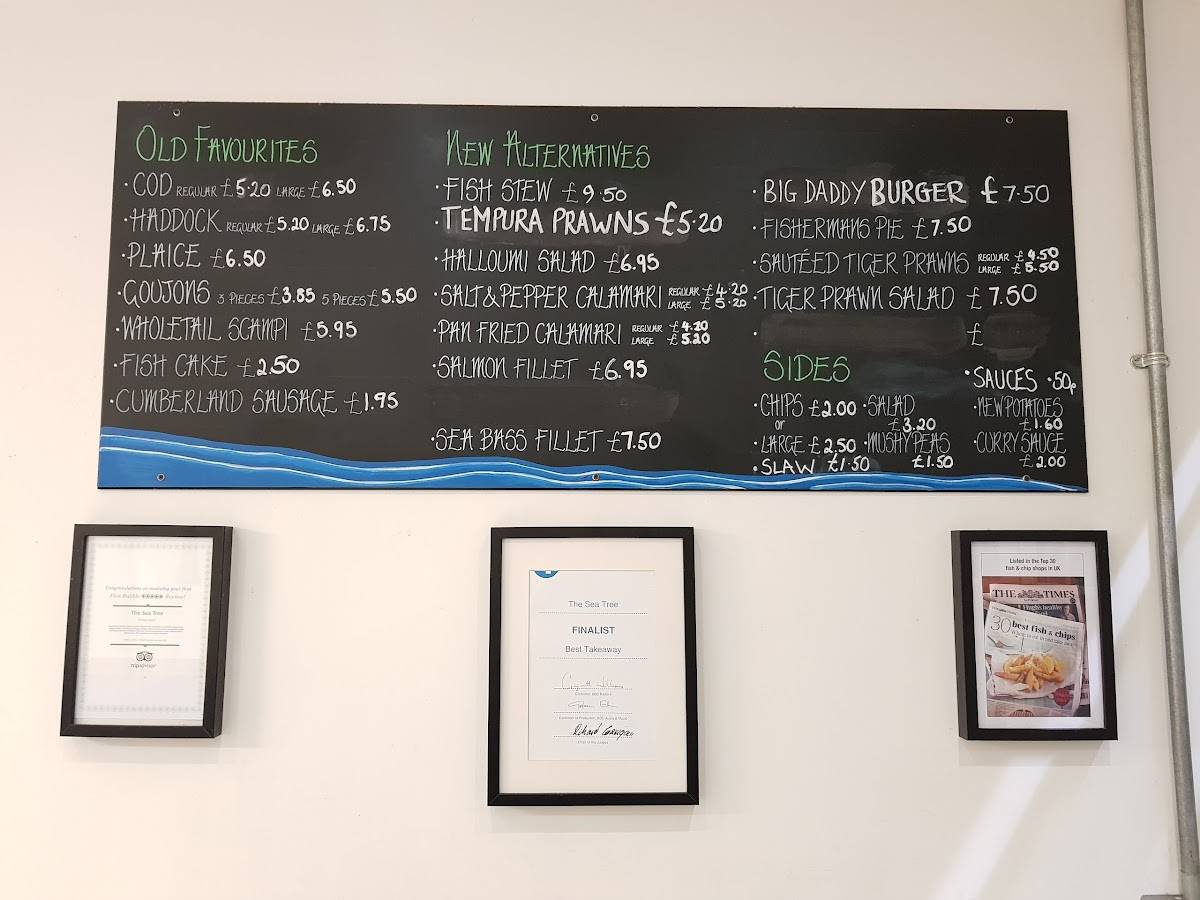 OLD FAVOURITES
·COD REGULAR £5·20 LARGE £6.50
·HADDOCK REGULAR £5.20 LARGE £6.75
·PLAICE £6.50
·GOUJONS 3 PIECES £3.85 5 PIECES £5.50
·WHOLETAIL SCAMPI £5.95
·FISH CAKE £2.50
·CUMBERLAND SAUSAGE £1.95
NEW ALTERNATIVES
·FISH STEW £9.50
·TEMPURA PRAWNS £5·20
·HALLOUMI SALAD £6.95
·SALT & PEPPER CALAMARI REGULAR £4·20
LARGE £5·20
·PAN FRIED CALAMARI REGULAR £4.20
LARGE £5.20
·SALMON FILLET £6.95
·SEA BASS FILLET £7.50
·BIG DADDY BURGER £7·50
·FISHERMANS PIE £7.50
·SAUTÉED TIGER PRAWNS REGULAR £4.50
LARGE £5.50
·TIGER PRAWN SALAD £7.50
· £
SIDES
·CHIPS £2.00
or
·LARGE £2.50
·SLAW £1.50
·SALAD
£3.20
·MUSHY PEAS
£1.50
·SAUCES ·50p
·NEW POTATOES
£1.60
·CURRY SAUCE
£2.00
Congratulations on receiving your first
Five Bubble Review!
The Sea Tree
tripadvisor
The Sea Tree
FINALIST
Best Takeaway
Chair of the Judges
Listed in the Top 30
fish & chip shops in UK
THE TIMES
30 best fish & chips